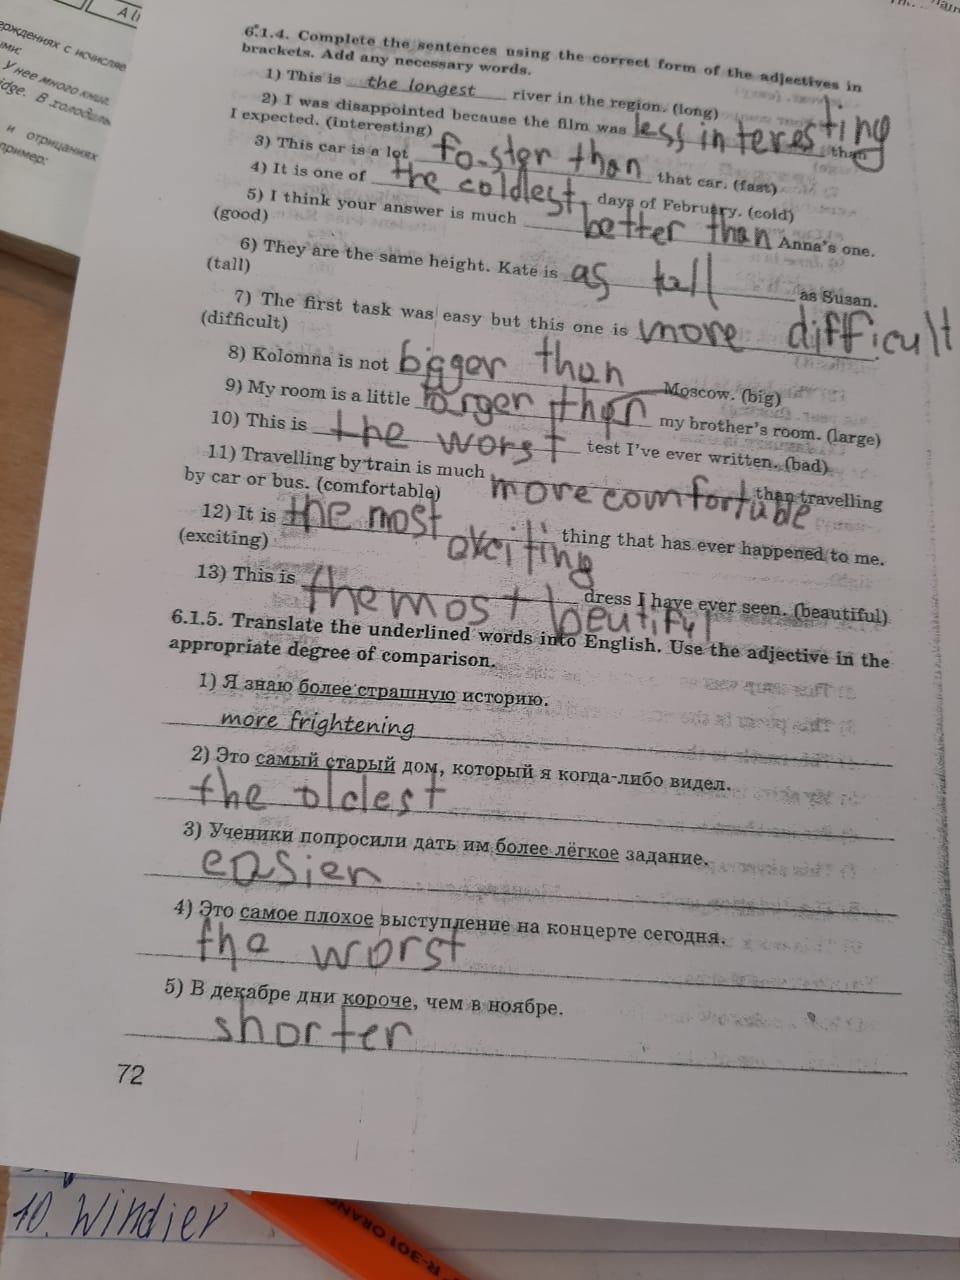 A li
ерждениях с исчисляе
ыми:
У нее много книг.
idge. В холодиль
и отрицаниях
ример:
6.1.4. Complete the sentences using the correct form of the adjectives in
brackets. Add any necessary words.
1) This is the longest river in the region. (long)
2) I was disappointed because the film was less interesting than
I expected. (interesting)
3) This car is a lot faster than that car. (fast)
4) It is one of the coldest days of February. (cold)
5) I think your answer is much better than Anna's one.
(good)
6) They are the same height. Kate is as tall as Susan.
(tall)
7) The first task was easy but this one is more difficult
(difficult)
8) Kolomna is not bigger than Moscow. (big)
9) My room is a little larger than my brother's room. (large)
10) This is the worst test I've ever written. (bad)
11) Travelling by train is much more comfortable than travelling
by car or bus. (comfortable)
12) It is the most exciting thing that has ever happened to me.
(exciting)
13) This is the most beutiful dress I have ever seen. (beautiful)
6.1.5. Translate the underlined words into English. Use the adjective in the
appropriate degree of comparison.
1) Я знаю более страшную историю.
more frightening
2) Это самый старый дом, который я когда-либо видел.
the oldest
3) Ученики попросили дать им более лёгкое задание.
easier
4) Это самое плохое выступление на концерте сегодня.
the worst
5) В декабре дни короче, чем в ноябре.
shorter
72
10. Windier
R-301 ORANG